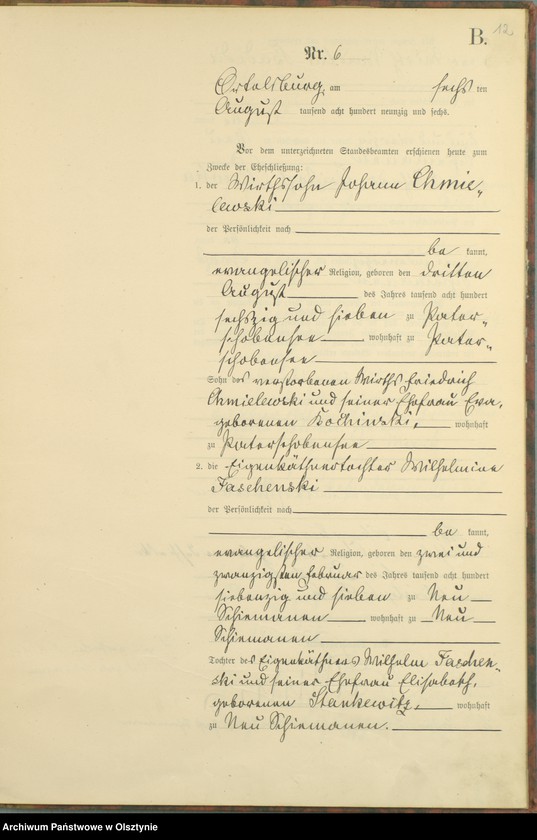 B. 12
Nr. 6
Ortelsburg, am sechsten
August tausend acht hundert neunzig und sechs.
Vor dem unterzeichneten Standesbeamten erschienen heute zum
Zwecke der Eheschließung:
1. der Wirthssohn Johann Chmie„
lewski
der Persönlichkeit nach
bekannt,
evangelischer Religion, geboren den dritten
August des Jahres tausend acht hundert
sechszig und sieben zu Pater„
schobensee wohnhaft zu Pater„
schobensee
Sohn des verstorbenen Wirths Friedrich
Chmielewski und seiner Ehefrau Eva,
geborenen Kochinski, wohnhaft
zu Paterschobensee
2. die Eigenkäthnertochter Wilhelmine
Faschenski
der Persönlichkeit nach
bekannt,
evangelischer Religion, geboren den zwei und
zwanzigsten Februar des Jahres tausend acht hundert
siebenzig und sieben zu Neu
Schiemanen wohnhaft zu Neu
Schiemanen
Tochter des Eigenkäthners Wilhelm Faschen„
ski und seiner Ehefrau Elisabeth,
geborenen Stankewitz, wohnhaft
zu Neu Schiemanen.
Archiwum Państwowe w Olsztynie